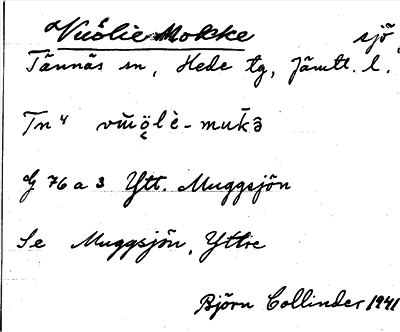 Vuölie Mokke sjö
Tännäs sn, Hede tg, Jämtl. l.
Tn 4 vūölè - mukā̂
G 76 a 3 Ytt. Muggsjön
Se Muggsjön, Yttre
Björn Collinder 1941